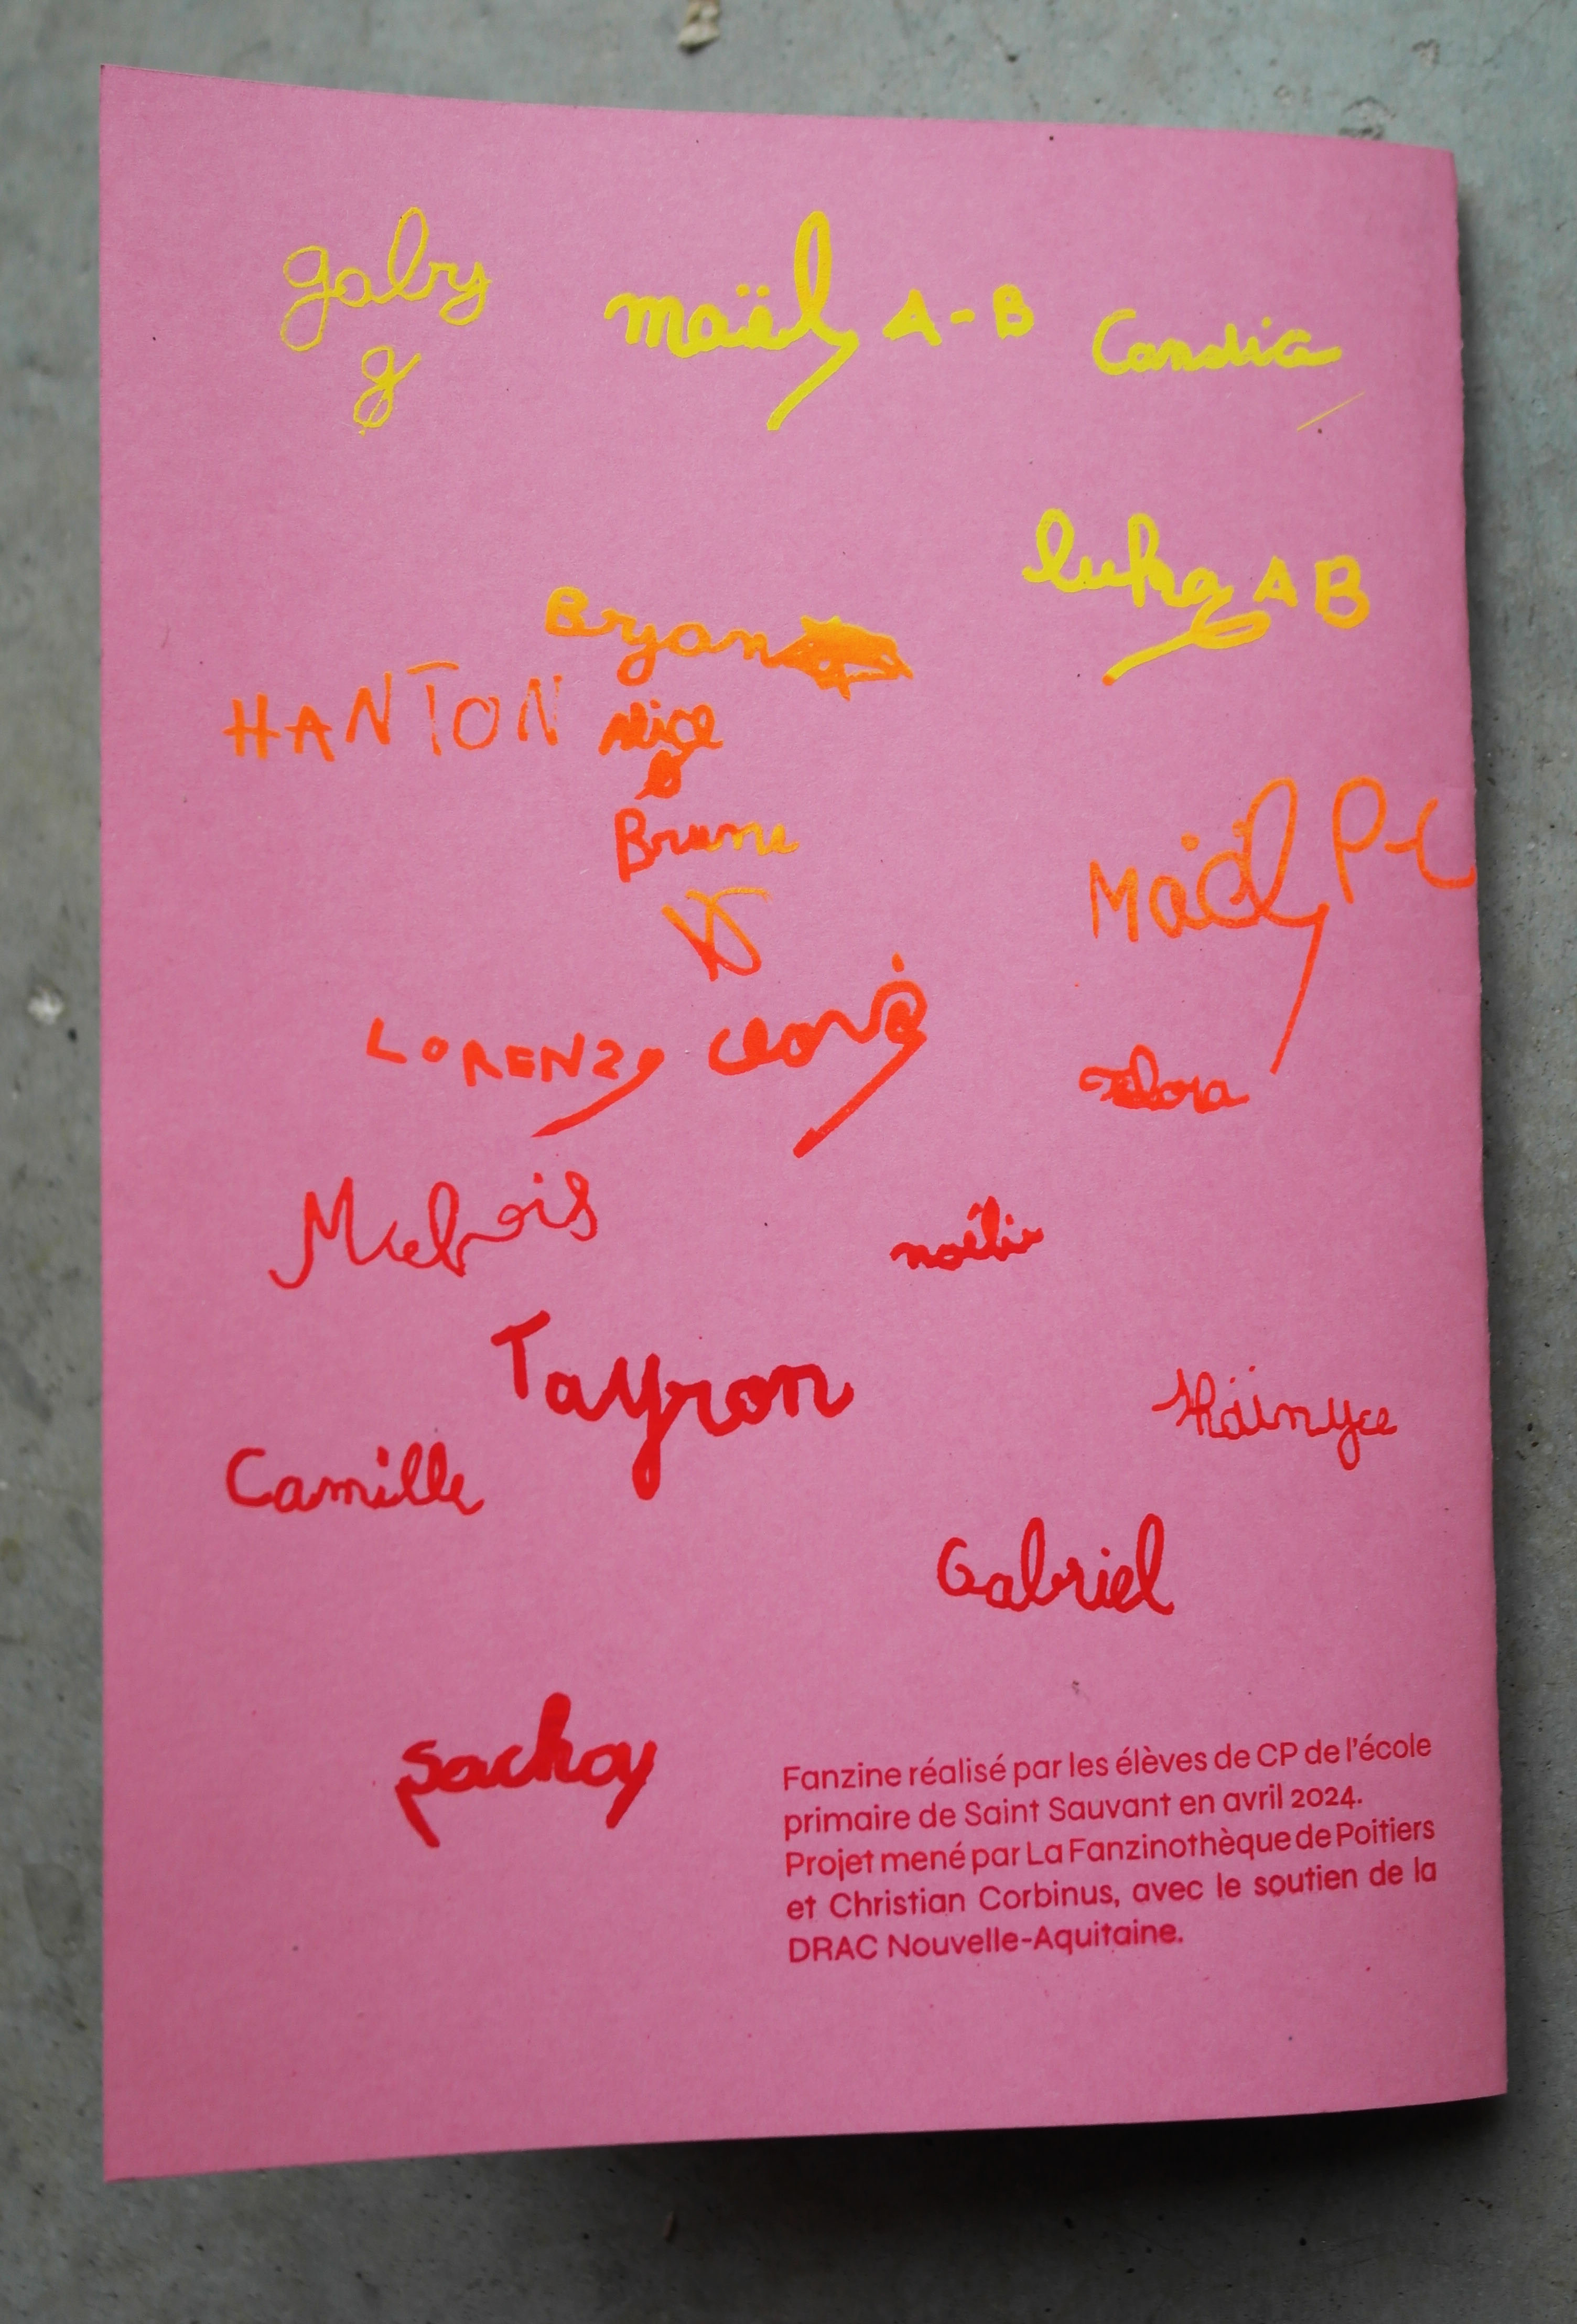 gaby
g
maël A-B
Candia
luka AB
Bryan
HANTON
Alice
B
Brune
Maël P-C
LORENZO
Flora
noélie
Tayron
Camille
Gabriel
sachay
Fanzine réalisé par les élèves de CP de l'école
primaire de Saint Sauvant en avril 2024.
Projet mené par La Fanzinothèque de Poitiers
et Christian Corbinus, avec le soutien de la
DRAC Nouvelle-Aquitaine.